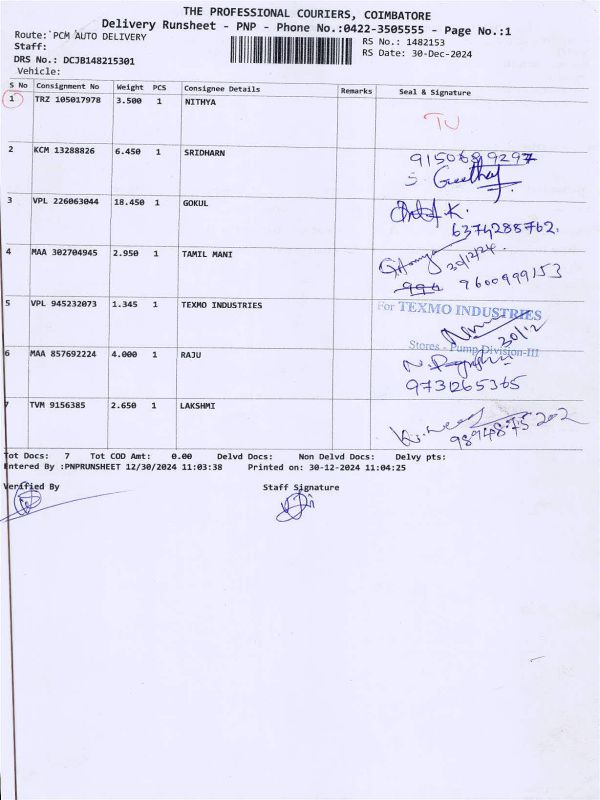 THE PROFESSIONAL COURIERS, COIMBATORE
Delivery Runsheet - PNP - Phone No.:0422-3505555 - Page No.:1
Route: PCM AUTO DELIVERY
RS No.: 1482153
Staff:
RS Date: 30-Dec-2024
DRS No.: DCJB148215301
Vehicle:
S No Consignment No Weight PCS Consignee Details Remarks Seal & Signature
1 TRZ 105017978 3.500 1 NITHYA
2 KCM 13288826 6.450 1 SRIDHARN
3 VPL 226063044 18.450 1 GOKUL
K.
6374285762.
4 MAA 302704945 2.950 1 TAMIL MANI
30/12/24.
9600999153
5 VPL 945232073 1.345 1 TEXMO INDUSTRIES
For TEXMO INDUSTRIES
30/12
Stores - Pump Division-III
6 MAA 857692224 4.000 1 RAJU
9731265365
7 TVM 9156385 2.650 1 LAKSHMI
9894875202
Tot Docs: 7 Tot COD Amt: 0.00 Delvd Docs: Non Delvd Docs: Delvy pts:
Entered By :PNPRUNSHEET 12/30/2024 11:03:38 Printed on: 30-12-2024 11:04:25
Verified By Staff Signature